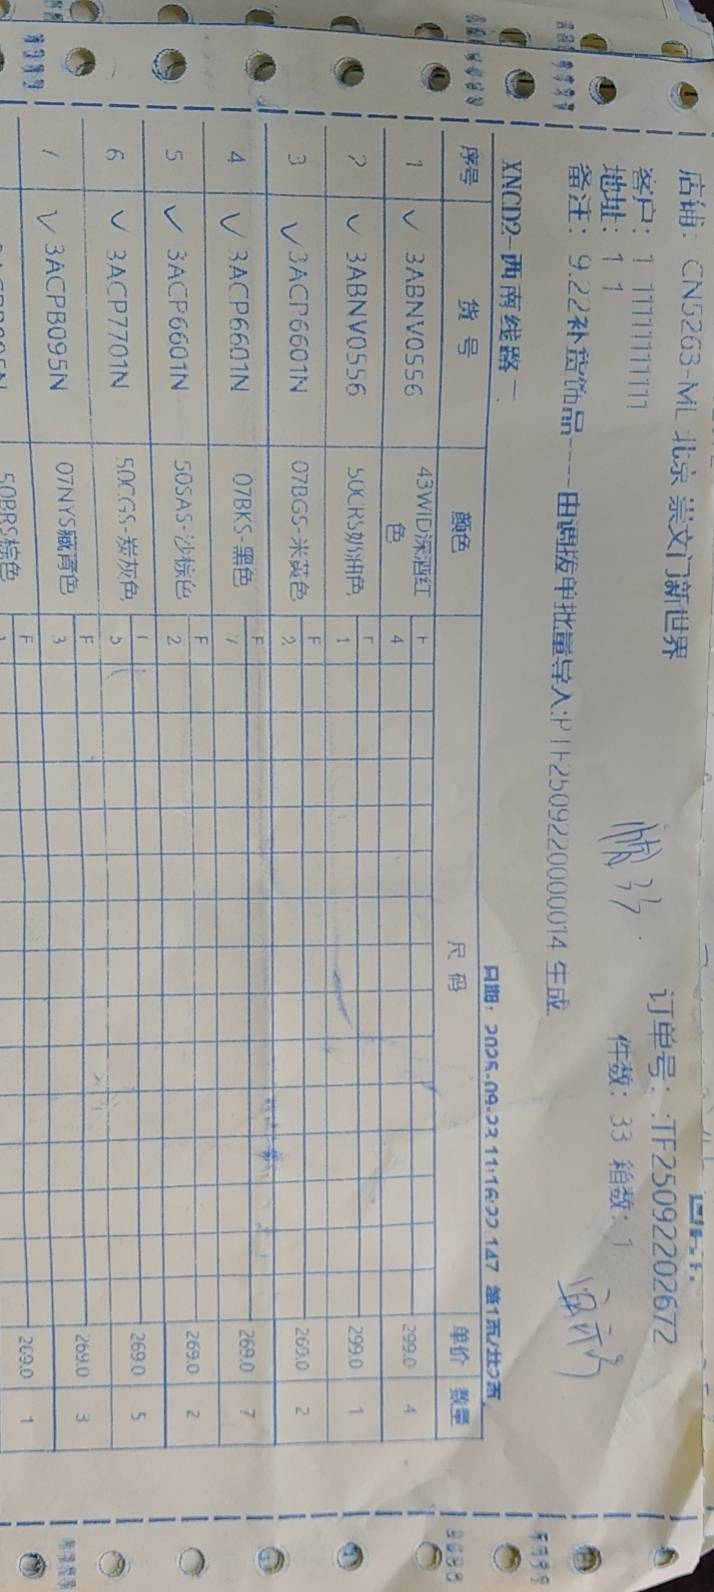 店铺: CN5263-ML 北京 崇文门新世界 订单号: :TF25092202672
客户: 1 11111111111
地址: 1 1 件数: 33 箱数: 1
备注: 9.22补货饰品----由调拨单批量导入:PTF2509220000014 生成
XNCD2-西南线路一 日期: 2025-09-23 11:16:22.147 第1页/共3页
序号 货号 颜色 尺码 单价 数量
1 ✓ 3ABNV0556 43WID深酒红色 F 4 299.0 4
2 ✓ 3ABNV0556 50CRS奶油色 F 1 299.0 1
3 ✓ 3ACP6601N 07BGS-米黄色 F 2 269.0 2
4 ✓ 3ACP6601N 07BKS-黑色 F 7 269.0 7
5 ✓ 3ACP6601N 50SAS-沙棕色 F 2 269.0 2
6 ✓ 3ACP7701N 50CGS-炭灰色 F 5 269.0 5
7 ✓ 3ACPB095N 07NYS藏青色 F 3 269.0 3
50BRS棕色 F 1 269.0 1